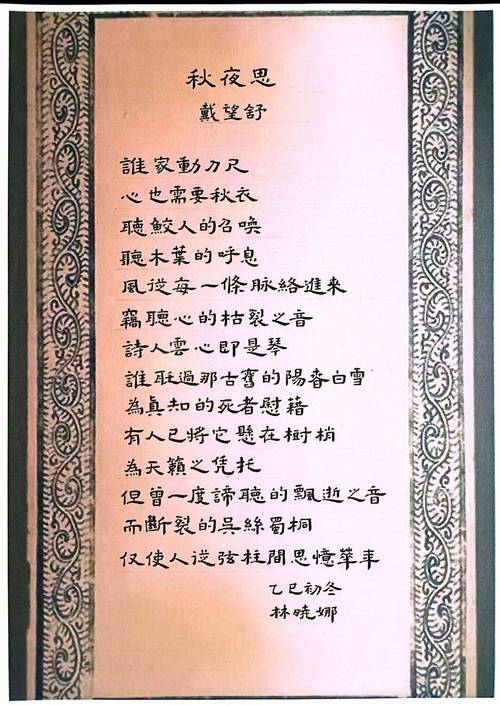 秋夜思
戴望舒
誰家動刀尺
心也需要秋衣
聽鮫人的召喚
聽木葉的呼息
風從每一條脉絡進來
竊聽心的枯裂之音
詩人雲心即是琴
誰聽過那古舊的陽春白雪
為真知的死者慰藉
有人已將它懸在樹梢
為天籟之凭托
但曾一度諦聽的飄逝之音
而斷裂的吳絲蜀桐
仅使人從弦柱間思憶華年
乙巳初冬
林曉娜